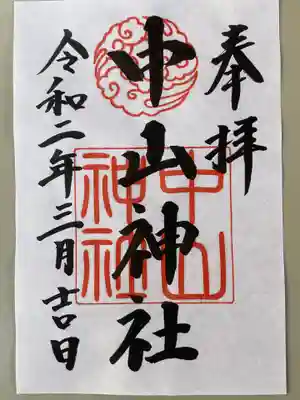 奉拝
中山神社
中山
神社
令和二年三月吉日